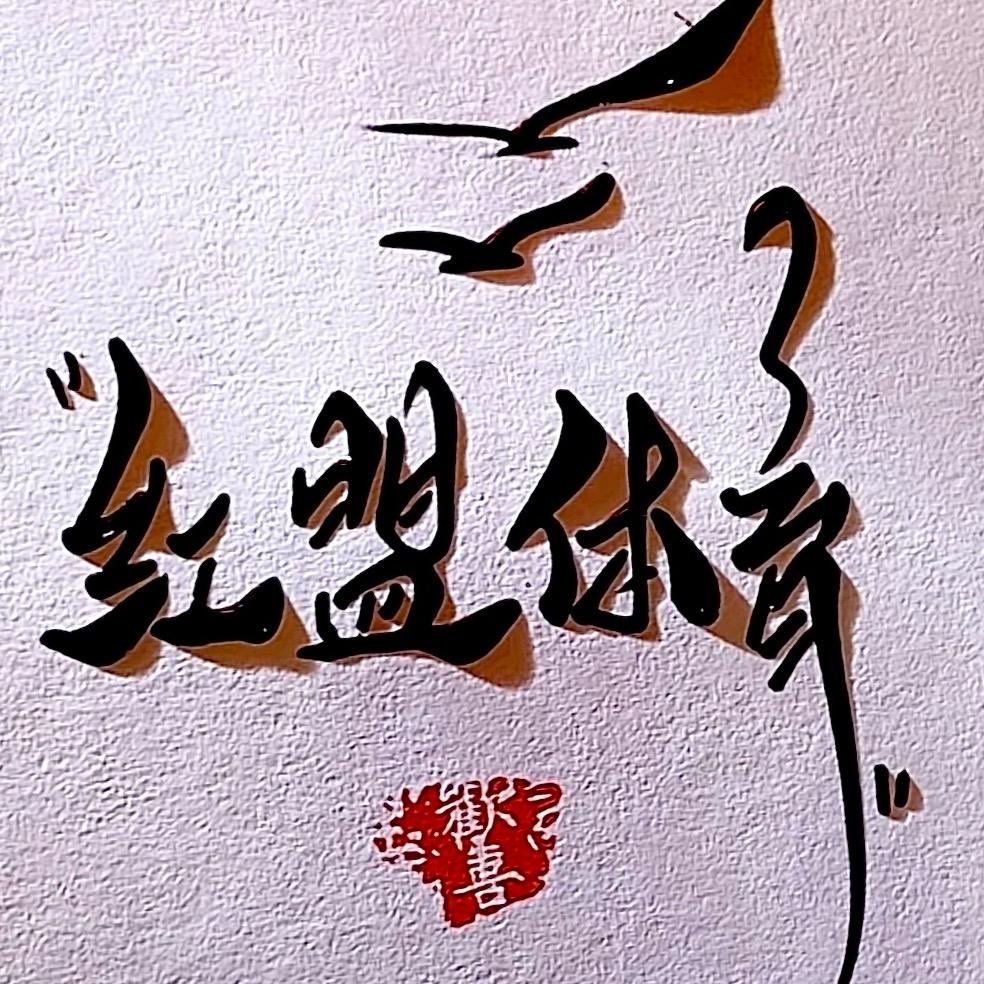 "红盟体育"
歡喜